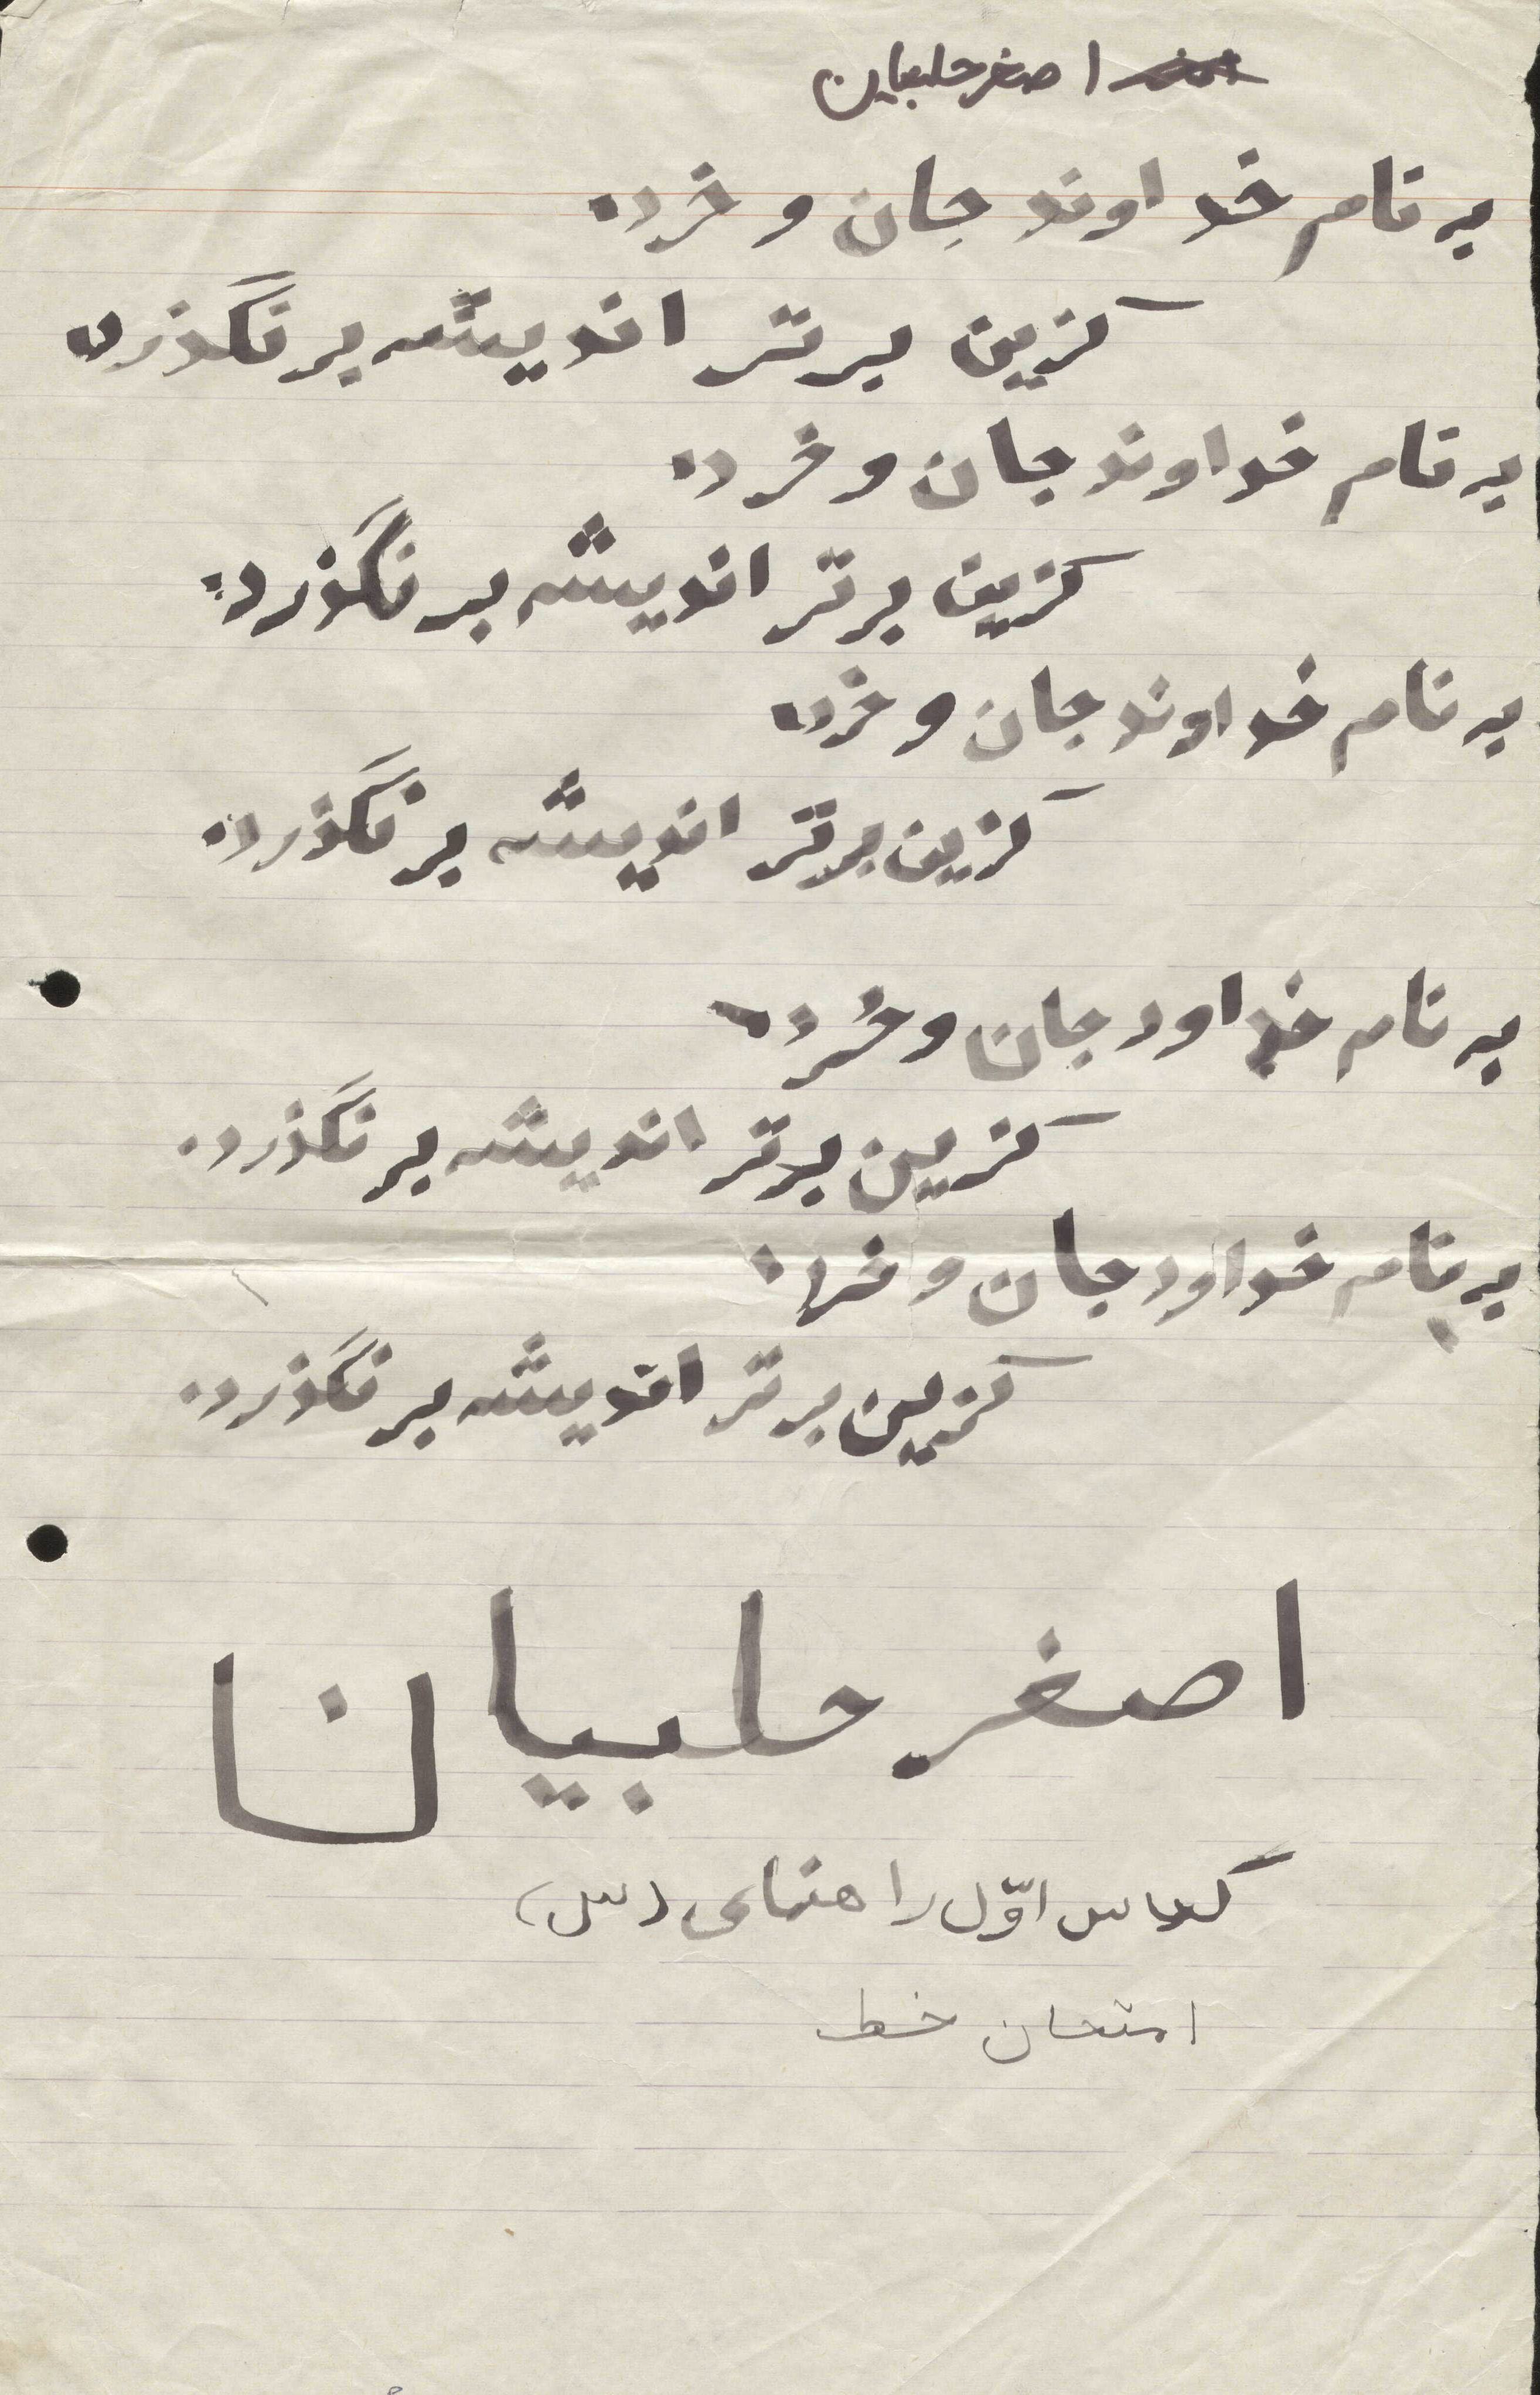 اصغر حلبیان
بر نام خداوند جان و خرد.
کزین برتر اندیشه بر نگذرد
بر نام خداوند جان و خرد.
کزین برتر اندیشه بر نگذرد.
بر نام خداوند جان و خرد.
کزین برتر اندیشه بر نگذرد.
بر نام خداود جان و خرد.
کزین برتر اندیشه بر نگذرد.
بر نام خداود جان و خرد.
کزین برتر اندیشه بر نگذرد.
اصغر حلبیان
کلاس اوّل راهنمای (س)
امتحان خط